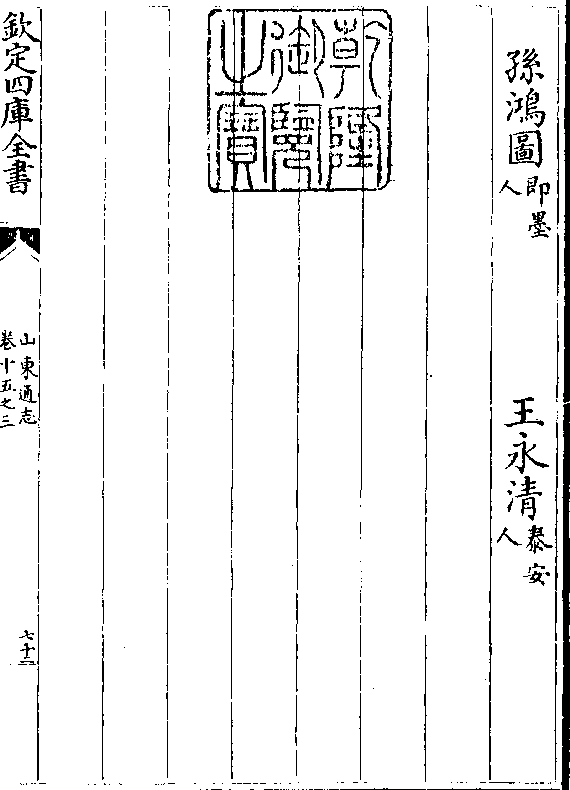 孫鴻圖 即墨人 王永清 泰安人
乾隆御覽之寶
欽定四庫全書
山東通志
卷十五之三
七十二